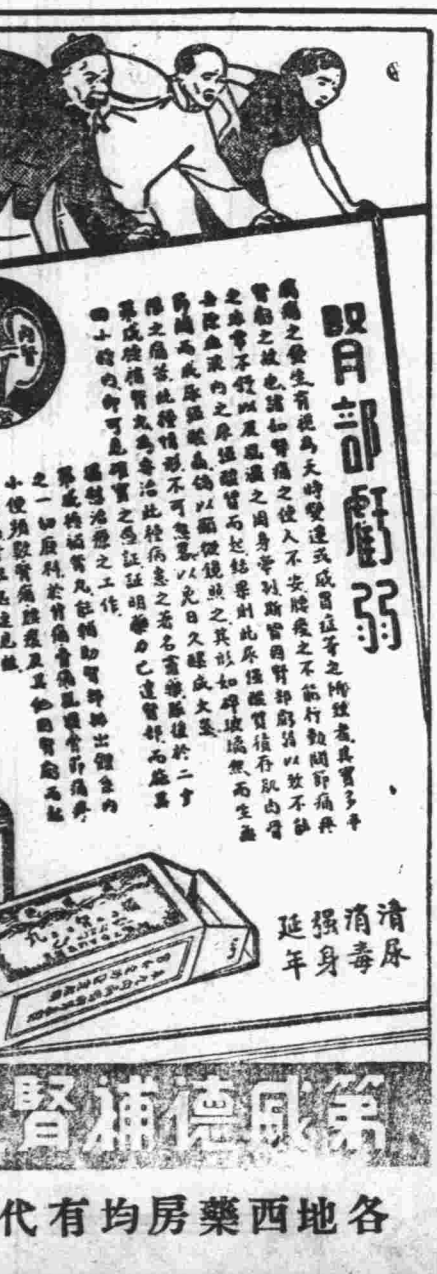 腎部虧弱
病痛之發生有視為天時變遷或感冒症等之所致者其實多半
腎虧之故也諸如腎痛之使人不安腰痠之不能行動關節痛疼
之 常不舒以及風濕之周身 刺斯皆因腎部虧弱以致不能
去除血液內之尿 酸質而起結果則此尿 酸質積存肌肉骨
節間而成尿 酸病倘以顯微鏡照之其形如碎玻璃然而生無
限之痛苦此種情形不可忽畧以免日久釀成大恙
第威德補腎丸為專治此種病患之著名靈藥服後於二十
四小時內即可見確實之憑証証明藥力已達腎部而施其
治療之工作
第威德補腎丸能輔助腎部排出體質內
之一切廢料於背痛骨痛風濕骨節痛疼
小便頻數腎痛腰痠及其他因腎虧而起
內腎
清尿
消毒
强身
延年
第威德補腎
各地西藥房均有代